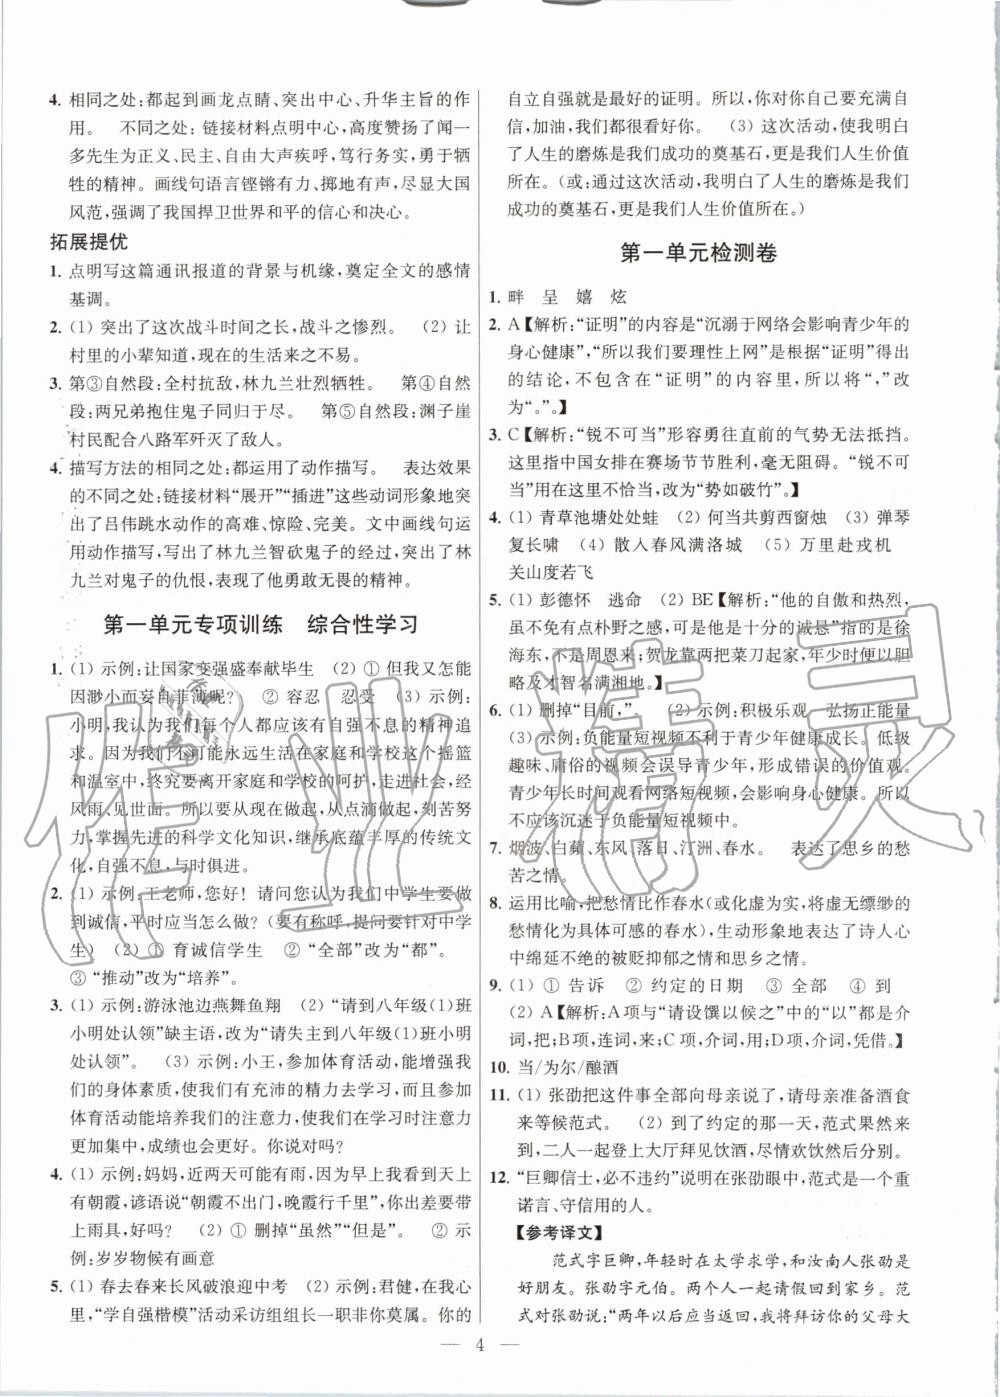 4. 相同之处:都起到画龙点睛、突出中心、升华主旨的作
用。　不同之处:链接材料点明中心,高度赞扬了闻一
多先生为正义、民主、自由大声疾呼,笃行务实,勇于牺
牲的精神。画线句语言铿锵有力、掷地有声,尽显大国
风范,强调了我国捍卫世界和平的信心和决心。
拓展提优
1. 点明写这篇通讯报道的背景与机缘,奠定全文的感情
基调。
2. (1) 突出了这次战斗时间之长,战斗之惨烈。　(2) 让
村里的小辈知道,现在的生活来之不易。
3. 第③自然段:全村抗敌,林九兰壮烈牺牲。　第④自然
段:两兄弟抱住鬼子同归于尽。　第⑤自然段:渊子崖
村民配合八路军歼灭了敌人。
4. 描写方法的相同之处:都运用了动作描写。　表达效果
的不同之处:链接材料“展开”“插进”这些动词形象地突
出了吕伟跳水动作的高难、惊险、完美。文中画线句运
用动作描写,写出了林九兰智砍鬼子的经过,突出了林
九兰对鬼子的仇恨,表现了他英勇无畏的精神。
第一单元专项训练　综合性学习
1. (1) 示例:让国家变强盛奉献毕生　(2) ① 但我又怎能
因渺小而妄自菲薄呢?　② 容忍　忍受　(3) 示例:
小明,我认为我们每个人都应该有自强不息的精神追
求。因为我们不可能永远生活在家庭和学校这个摇篮
和温室中,终究要离开家庭和学校的呵护,走进社会,经
风雨、见世面。所以要从小做起,从点滴做起,刻苦努
力,掌握先进的科学文化知识,继承底蕴丰厚的传统文
化,自强不息,与时俱进。
2. (1) 示例:王老师,您好!　请问您认为我们中学生要做
到诚信,平时应当怎么做?(要有称呼,提问要针对中学
生)　(2) ① 育诚信学生　② “全部”改为“都”。
③ “推动”改为“培养”。
3. (1) 示例:游泳池边燕舞鱼翔　(2) “请到八年级(1)班
小明处认领”缺主语,改为“请失主到八年级(1)班小明
处认领”。　(3) 示例:小王,参加体育活动,能增强我
们的身体素质,使我们有充沛的精力去学习,而且参加
体育活动能培养我们的注意力,使我们在学习时注意力
更加集中,成绩也会更好。你说对吗?
4. (1) 示例:妈妈,近两天可能有雨,因为早上我看到天上
有朝霞,谚语说“朝霞不出门,晚霞行千里”,你出差要带
上雨具,好吗?　(2) ① 删掉“虽然”“但是”。　② 示
例:岁岁物候有画意
5. (1) 春去春来长风破浪迎中考　(2) 示例:君健,在我心
里,“学自强楷模”活动采访组组长一职非你莫属。你的
自立自强就是最好的证明。所以,你对自己要充满自
信,加油,我们都很看好你。　(3) 这次活动,使我明白
了人生的磨炼是我们成功的奠基石,更是我们人生价值
所在。(或:通过这次活动,我明白了人生的磨炼是我们
成功的奠基石,更是我们人生价值所在。)
第一单元检测卷
1. 畔　呈　嬉　炫
2. A【解析:“证明”的内容是“沉溺于网络会影响青少年的
身心健康”,“所以我们要理性上网”是根据“证明”得出
的结论,不包含在“证明”的内容里,所以将“,”改
为“。”。】
3. C【解析:“锐不可当”形容勇往直前的气势无法抵挡。
这里指中国女排在赛场节节胜利,毫无阻碍。“锐不可
当”用在这里不恰当,改为“势如破竹”。】
4. (1) 青草池塘处处蛙　(2) 何当共剪西窗烛　(3) 弹琴
复长啸　(4) 散入春风满洛城　(5) 万里赴戎机
关山度若飞
5. (1) 彭德怀　逃命　(2) BE【解析:“他的自傲和热烈,
虽不免有点朴野之感,可是他是十分的诚恳”指的是徐
海东,不是周恩来;贺龙靠两把菜刀起家,年少时,以胆
略及才智名满湘地。】
6. (1) 删掉“目前,”。　(2) 示例:积极乐观　弘扬正能量
(3) 示例:负能量短视频不利于青少年健康成长。低级
趣味、庸俗的视频会误导青少年,形成错误的价值观。
青少年长时间观看网络短视频,会影响身心健康。所以
不应该沉迷于负能量短视频中。
7. 烟波、白蘋、东风、落日、汀洲、春水。　表达了思乡的愁
苦之情。
8. 运用比喻,把愁情比作春水(或化虚为实,将虚无缥缈的
愁情化为具体可感的春水),生动形象地表达了诗人心
中绵延不绝的被贬抑郁之情和思乡之情。
9. (1) ① 告诉　② 约定的日期　③ 全部　④ 到
(2) A【解析:A项与“请设馔以候之”中的“以”都是介
词,把;B项,连词,来;C项,介词,用;D项,介词,凭借。】
10. 当/为尔/酿酒
11. (1) 张劭把这件事全部向母亲说了,请母亲准备酒食
来等候范式。　(2) 到了约定的那一天,范式果然来
到,二人一起登上大厅拜见饮酒,尽情欢饮然后分别。
12. “巨卿信士,必不违约”说明在张劭眼中,范式是一个重
诺言、守信用的人。
【参考译文】
范式字巨卿,年轻时在太学求学,和汝南人张劭是
好朋友。张劭字元伯。两个人一起请假回到家乡。范
式对张劭说:“两年以后应当返回,我将拜访你的父母大
— 4 —
作业精灵